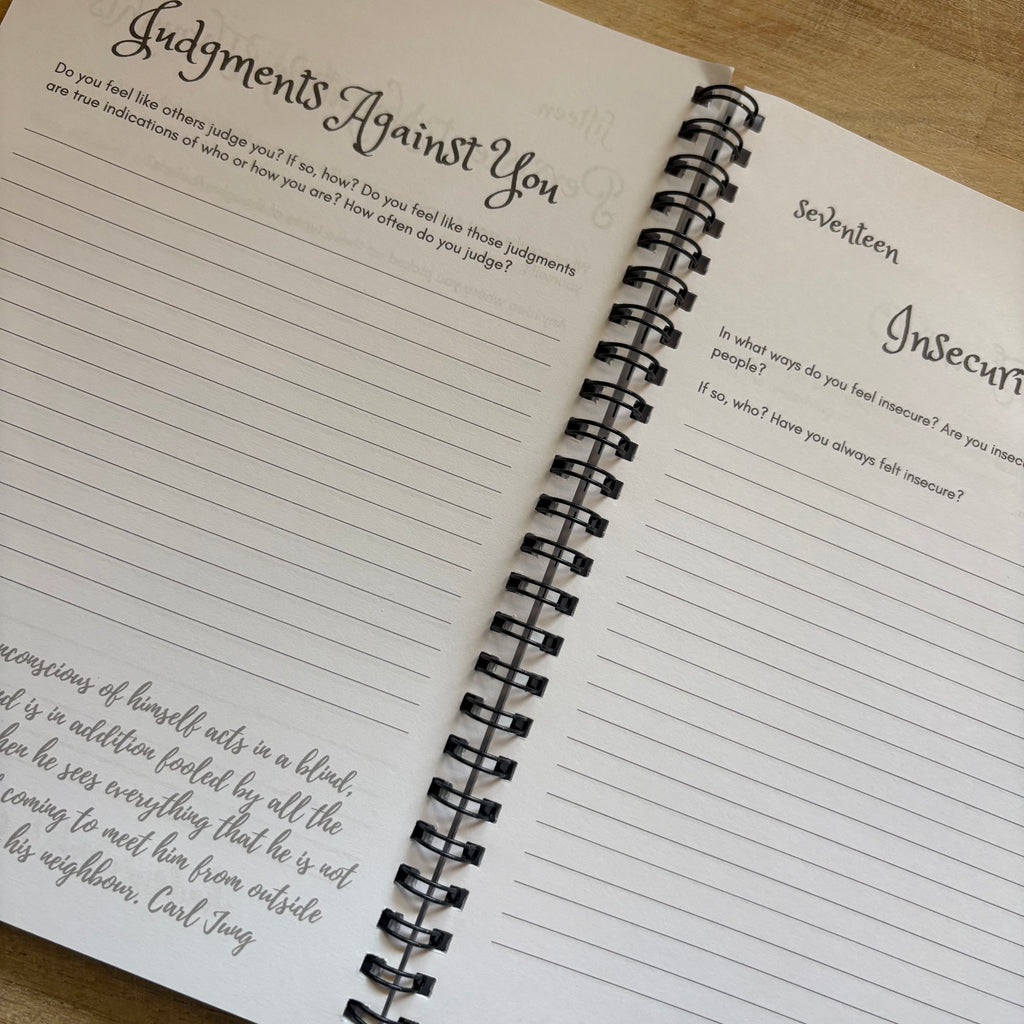 Judgments Against You
Do you feel like others judge you? If so, how? Do you feel like those judgments
are true indications of who or how you are? How often do you judge?
nconscious of himself acts in a blind,
d is in addition fooled by all the
hen he sees everything that he is not
coming to meet him from outside
his neighbour. Carl Jung
seventeen
Insecuri
In what ways do you feel insecure? Are you insec
people?
If so, who? Have you always felt insecure?
fifteen